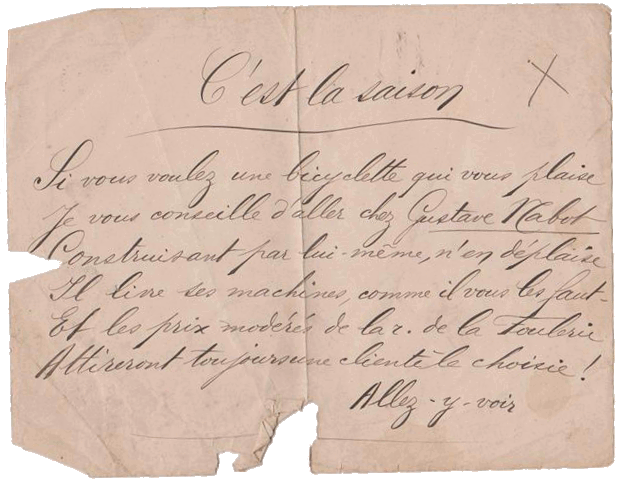 C'est la saison
Si vous voulez une bicyclette qui vous plaise
Je vous conseille d'aller chez Gustave Nabot
Construisant par lui-même, n'en déplaise
Il livre ses machines, comme il vous les faut-
Et les prix modérés de la r. de la Foulerie
Attireront toujours une clientèle choisie !
Allez-y-voir